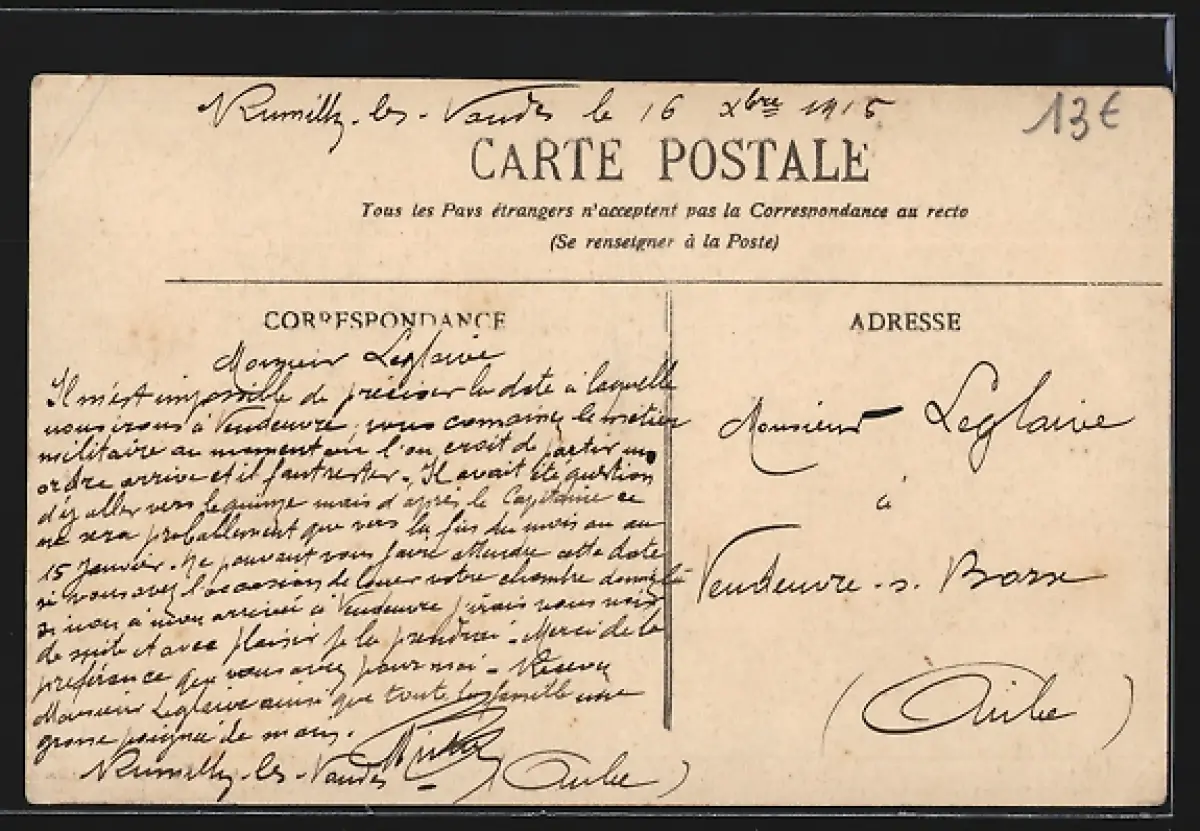 Rumilly-les-Vaudes le 16 Xbre 1915
13€
CARTE POSTALE
Tous les Pays étrangers n'acceptent pas la Correspondance au recto
(Se renseigner à la Poste)
CORRESPONDANCE
Monsieur Leglaive
Il m'est impossible de préciser la date à laquelle
nous irons à Vendeuvre, vous connaissez le métier
militaire au moment où l'on croit de partir un
ordre arrive et il faut rester. Il avait été question
d'y aller vers le quinze mais d'après le Capitaine ce
ne sera probablement que vers la fin du mois ou au
15 Janvier. Ne pouvant vous faire attendre cette date
si vous avez l'occasion de louer votre chambre donnez là
si non à mon arrivée à Vendeuvre j'irais vous voir
de suite et avec plaisir je la prendrai. Merci de la
préférence que vous avez pour moi. Recevez
Monsieur Leglaive ainsi que toute la famille une
grosse poignée de main.
Rumilly-les-Vaudes (Aube)
ADRESSE
Monsieur Leglaive
à
Vendeuvre-s. Barse
(Aube)